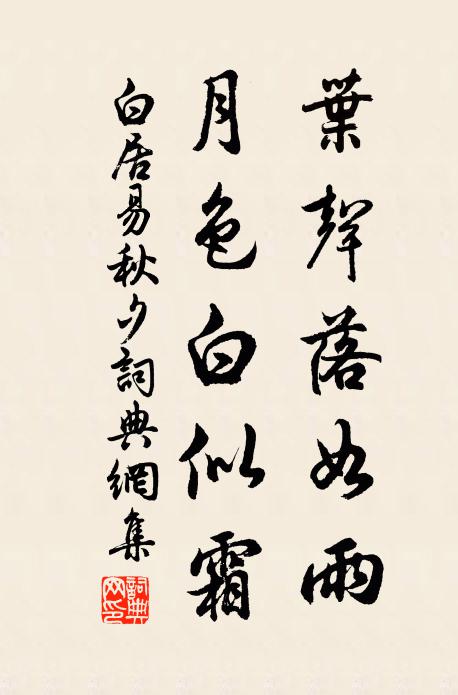 葉聲落如雨
月色白似霜
白居易秋夕詞典網集
詞典網印